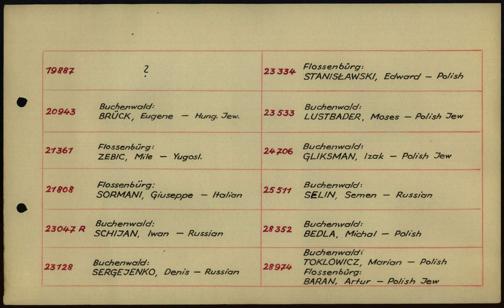 19887 ?
20943 Buchenwald:
BRÜCK, Eugene - Hung. Jew.
21361 Flossenbürg:
ZEBIC, Mile - Yugosl.
21808 Flossenbürg:
SORMANI, Giuseppe - Italian
23047 R Buchenwald:
SCHIJAN, Iwan - Russian
23128 Buchenwald:
SERGEJENKO, Denis - Russian
23334 Flossenbürg:
STANISŁAWSKI, Edward - Polish
23533 Buchenwald:
LUSTBADER, Moses - Polish Jew
24706 Buchenwald:
GLIKSMAN, Izak - Polish Jew
25511 Buchenwald:
SELIN, Semen - Russian
28352 Buchenwald:
BEDLA, Michal - Polish
28974 Buchenwald:
TOKLOWICZ, Marian - Polish
Flossenbürg:
BARAN, Artur - Polish Jew